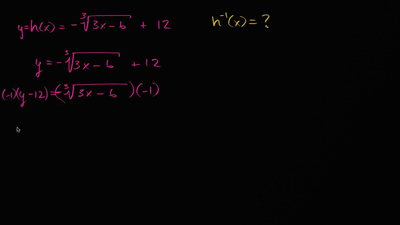 y=h(x) = -∛(3x-6) + 12
h⁻¹(x) = ?
y = -∛(3x-6) + 12
(-1)(y-12) = (-∛(3x-6))(-1)